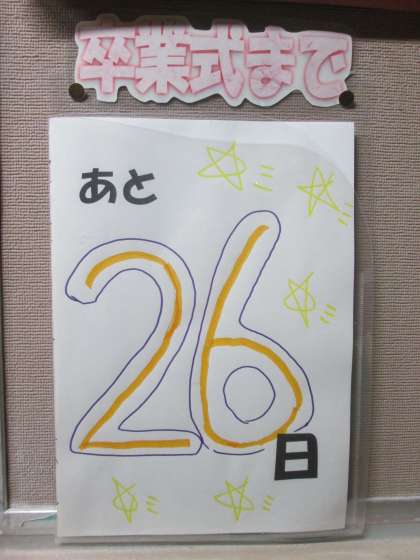 卒業式まで
あと
26
日